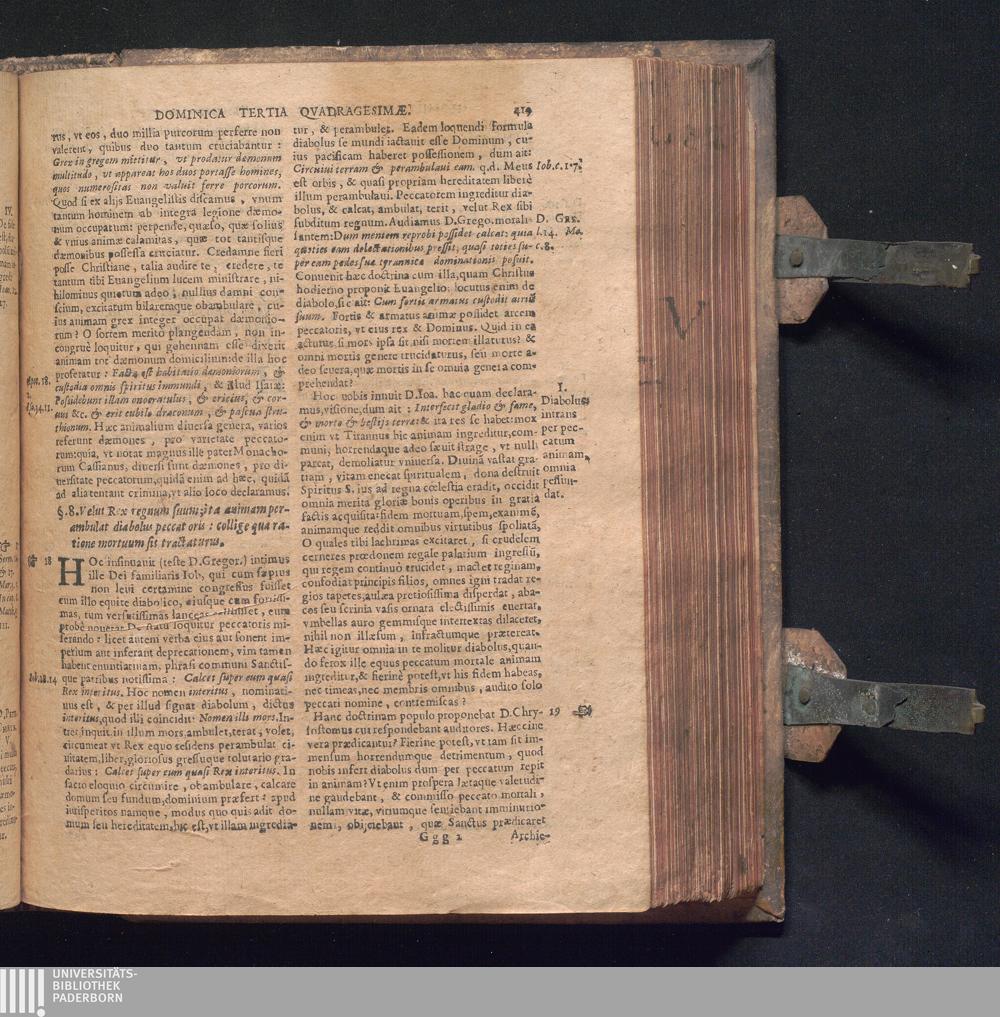 DOMINICA TERTIA QVADRAGESIMÆ. 419
rus, vt eos, duo millia purcorum perferre non
valerent, quibus duo tantum cruciabantur :
Grex in gregem mittitur, vt prodatur dæmonum
multitudo, vt appareat hos duos portasse homines,
quos numerositas non valuit ferre porcorum.
Quod si ex alijs Euangelistis discamus, vnum
tantum hominem ab integra legione dæmo-
num occupatum: perpende, quæso, quæ solius
& vnius animæ calamitas, quæ tot tantisque
dæmonibus possessa cruciatur. Credamne fieri
posse Christiane, talia audire te, credere, te
tantum tibi Euangelium lucem ministrare, ni-
hilominus quietum adeo, nullius damni con-
scium, excitatum hilaremque obambulare, cu-
ius animam grex integer occupat dæmonio-
rum? O sortem merito plangendam, non in-
congruè loquitur, qui gehennam esse dixerit
animam tot dæmonum domicilium: de illa hoc
proferatur : Facta est habitatio dæmoniorum, &
custodia omnis spiritus immundi, & illud Isaiæ:
Possidebunt illam onocratulus, & ericius, & cor-
uus &c. & erit cubile draconum, & pascua stru-
thionum. Hæc animalium diuersa genera, varios
referunt dæmones, pro varietate peccato-
rum: quia, vt notat magnus ille pater Monacho-
rum Cassianus, diuersi sunt dæmones, pro di-
uersitate peccatorum, quidã enim ad hæc, quidã
ad alia tentant crimina, vt alio loco declaramus.
Apoc. 18.
2.
Isa. 34. 11.
§. 8. Velut Rex regnum suum; ita animam per-
ambulat diabolus peccatoris : collige qua ra-
tione mortuum sit tractaturus.
18
HOc insinuauit (teste D. Gregor.) intimus
ille Dei familiaris Iob, qui cum sæpius
non leui certamine congressus fuisset
cum illo equite diabolico, eiusque cum fortissi-
mas, tum versutissimas lanceas, eum
probè nouerat. De statu loquitur peccatoris mi-
serando : licet autem verba eius aut sonent im-
perium aut inferant deprecationem, vim tamen
habent enuntiatiuam, phrasi communi Sanctis-
que patribus notissima : Calcet super eum quasi
Rex interitus. Hoc nomen interitus, nominati-
uus est, & per illud signat diabolum, dictus
interitus, quod illi coincidit: Nomen illi mors. In-
tret inquit in illum mors, ambulet, terat, volet,
circumeat vt Rex equo residens perambulat ci-
uitatem, liber, gloriosus gressuque tolutario gra-
darius : Calcet super eum quasi Rex interitus. In
facto eloquio circumire, obambulare, calcare
domum seu fundum, dominium præfert: apud
iurisperitos namque, modus quo quis adit do-
mum seu hereditatem, hic est, vt illam ingredia-
Iob. 18. 14
tur, & perambulet. Eadem loquendi formula
diabolus se mundi iactauit esse Dominum, cu-
ius pacificam haberet possessionem, dum ait:
Circuiui terram & perambulaui eam. q.d. Meus
est orbis, & quasi propriam hereditatem liberè
illum perambulaui. Peccatorem ingreditur dia-
bolus, & calcat, ambulat, terit, velut Rex sibi
subditum regnum. Audiamus D. Grego. morali-
santem: Dum mentem reprobi possidet calcat: quia
quoties eam delectationibus pressit; quasi toties su-
per eam pedes suæ tyrannicæ dominationis posuit.
Conuenit hæc doctrina cum illa, quam Christus
hodierno proponit Euangelio, locutus enim de
diabolo, sic ait: Cum fortis armatus custodit atriũ
suum. Fortis & armatus animæ possidet arcem
peccatoris, vt eius rex & Dominus. Quid in ea
acturus, si mors ipsa sit nisi mortem illaturus? &
omni mortis genere trucidaturus, seu morte a-
deo seuera, quæ mortis in se omnia genera com-
prehendat?
Iob. c. 1. 7.
D. Gre.
l. 14. Mo.
c. 8.
Hoc uobis innuit D. Ioa. hac quam declara-
mus, visione, dum ait : Interfecit gladio & fame,
& morte & bestijs terræ: & ita res se habet: mox
enim vt Tirannus hic animam ingreditur, com-
muni, horrendaque adeo sæuit strage, vt nulli
parcat, demoliatur vniuersa. Diuinã vastat gra-
tiam, vitam enecat spiritualem, dona destruit
Spiritus S. ius ad regna cœlestia eradit, occidit
omnia merita gloriæ bonis operibus in gratia
factis acquisita: fidem mortuam, spem, exanimẽ,
animamque reddit omnibus virtutibus spoliatã,
O quales tibi lachrimas excitaret, si crudelem
cerneres prædonem regale palatium ingressũ,
qui regem continuò trucidet, mactet reginam,
confodiat principis filios, omnes igni tradat re-
gios tapetes, aulæa pretiosissima disperdat, aba-
cos seu scrinia vasis ornata electissimis euertat,
vmbellas auro gemmisque intertextas dilaceret,
nihil non illæsum, infractumque prætereat.
Hæc igitur omnia in te molitur diabolus, quan-
do ferox ille equus peccatum mortale animam
ingreditur, & fierinè potest, vt his fidem habeas,
nec timeas, nec membris omnibus, audito solo
peccati nomine, contremiscas?
1.
Diabolus
intrans
per pec-
catum
animam,
omnia
pessun-
dat.
Hanc doctrinam populo proponebat D. Chry-
sostomus cui respondebant auditores. Hæccine
vera prædicantur? Fierine potest, vt tam sit im-
mensum horrendumque detrimentum, quod
nobis infert diabolus dum per peccatum repit
in animam? Vt enim prospera lætaque valetudi-
ne gaudebant, & commisso peccato mortali,
nullam vitæ, viriumque sentiebant imminutio-
nem, obijciebant, quæ Sanctus prædicaret
19
Ggg 2 Archie-
UNIVERSITÄTS-
BIBLIOTHEK
PADERBORN